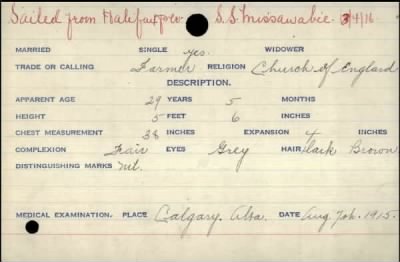 Sailed from Halifax per S.S. Missanabie. 3/4/16
MARRIED SINGLE yes. WIDOWER
TRADE OR CALLING Farmer RELIGION Church of England
DESCRIPTION.
APPARENT AGE 29 YEARS 5 MONTHS
HEIGHT 5 FEET 6 INCHES
CHEST MEASUREMENT 38 INCHES EXPANSION 4 INCHES
COMPLEXION Fair EYES Grey HAIR Dark Brown
DISTINGUISHING MARKS Nil.
MEDICAL EXAMINATION. PLACE Calgary. Alba. DATE Aug 7th. 1915.